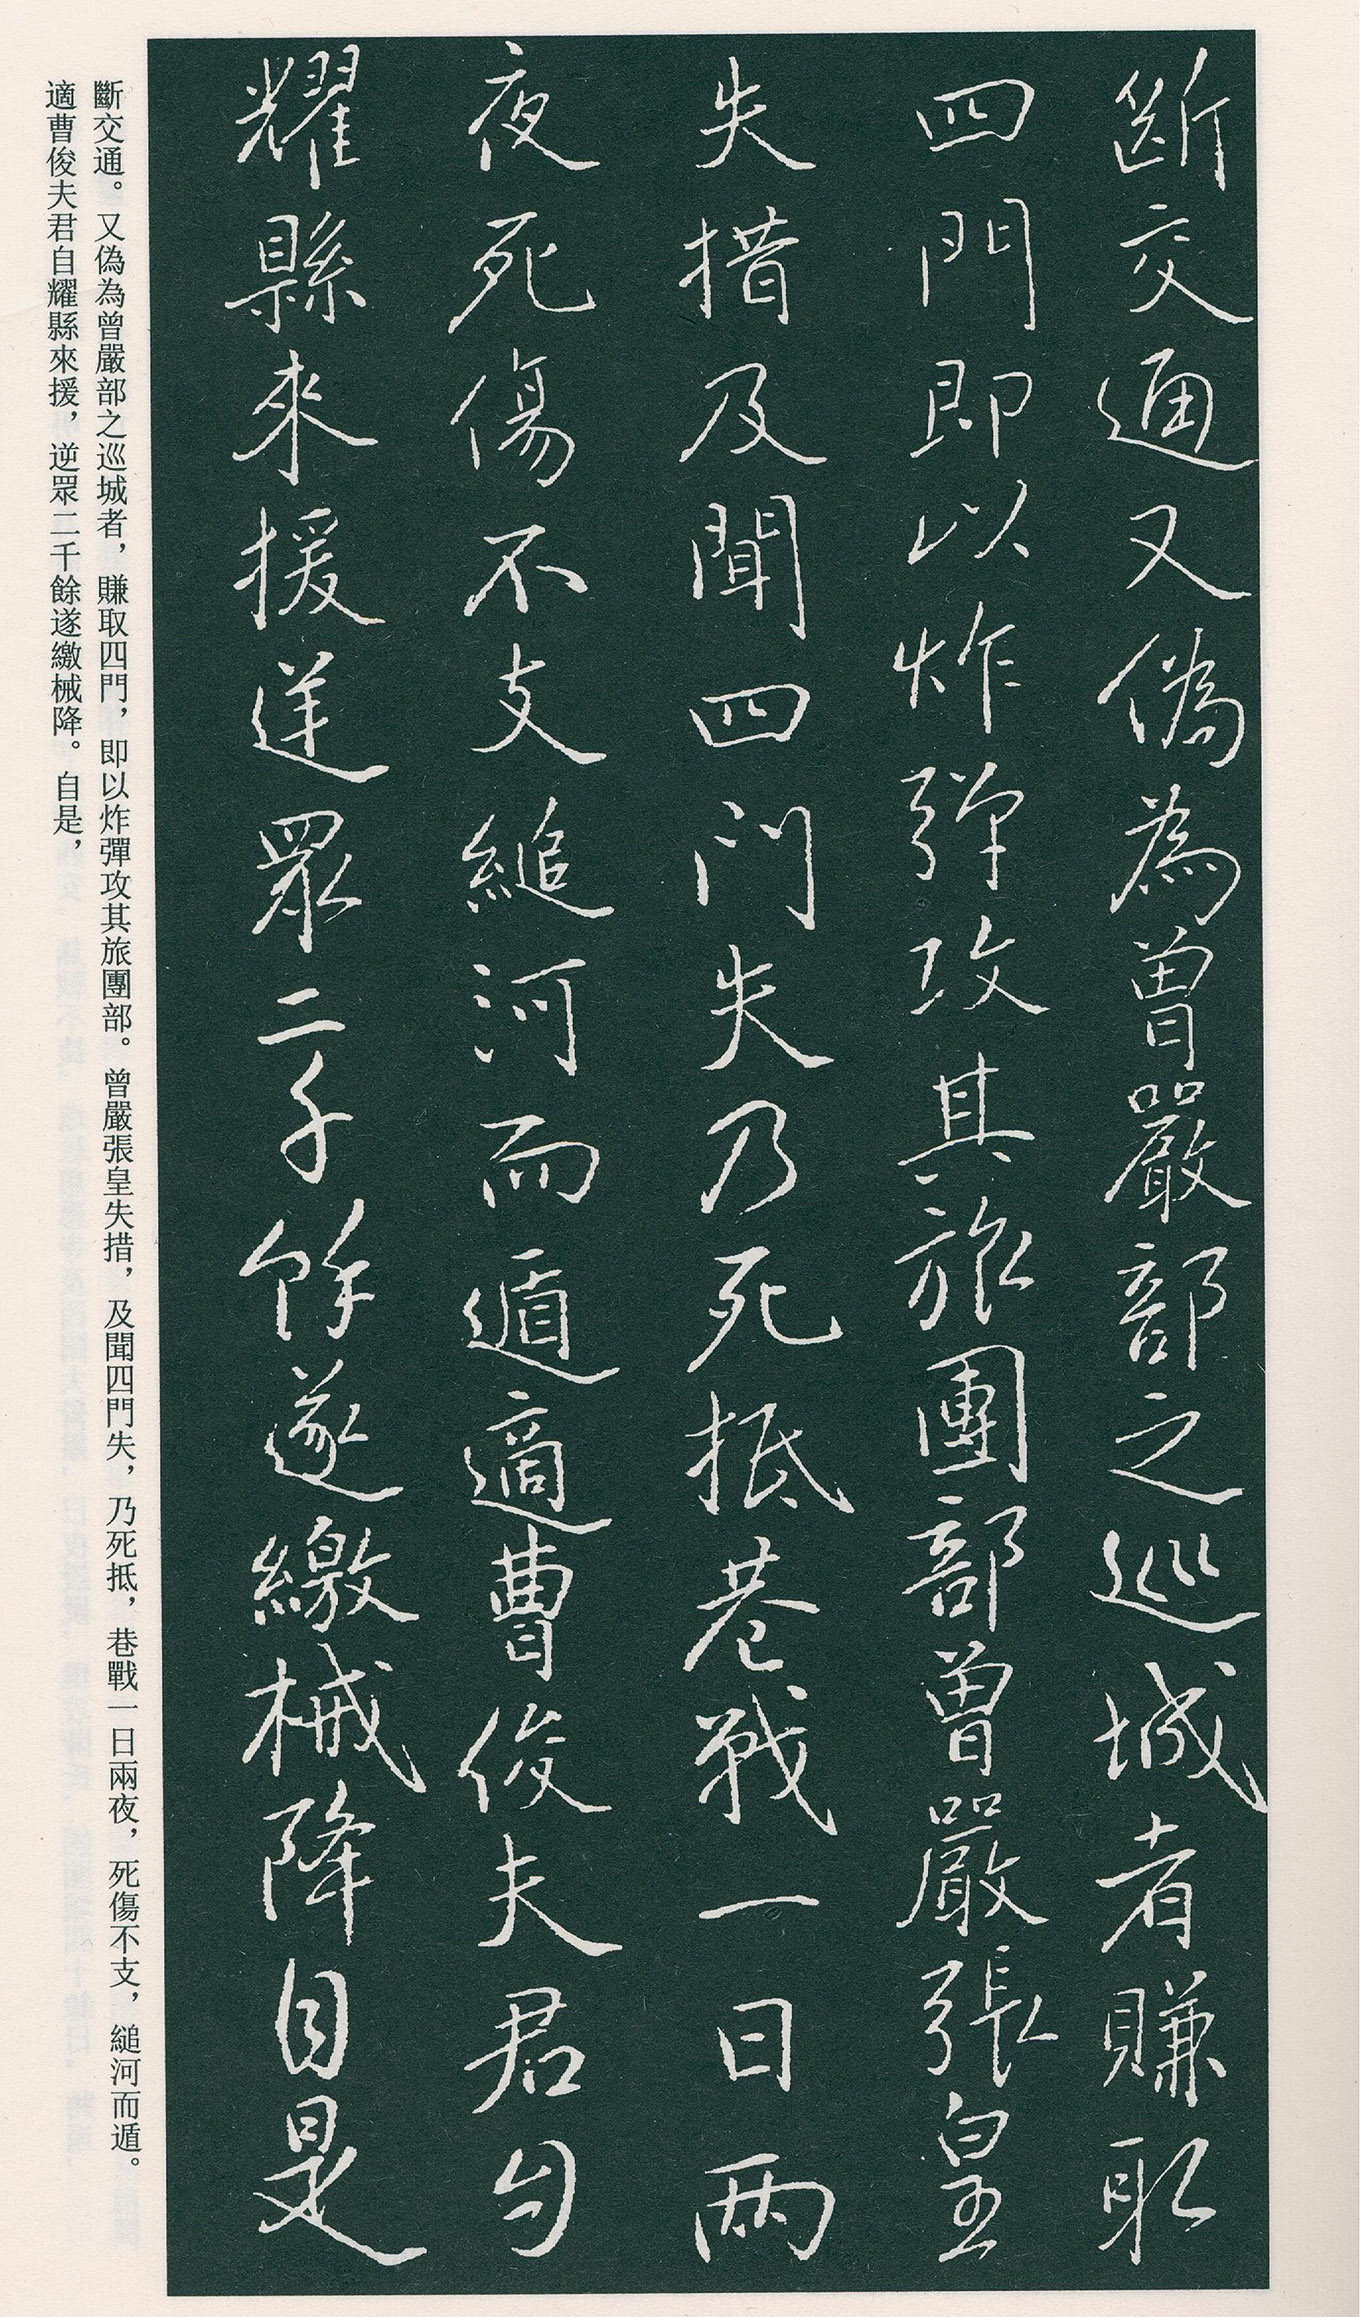 斷交通又偽為曾嚴部之巡城者賺取
四門即以炸彈攻其旅團部曾嚴張皇
失措及聞四門失乃死抵巷戰一日兩
夜死傷不支縋河而遁適曹俊夫君自
耀縣來援逆眾二千餘遂繳械降自是
斷交通。又偽為曾嚴部之巡城者，賺取四門，即以炸彈攻其旅團部。曾嚴張皇失措，及聞四門失，乃死抵，巷戰一日兩夜，死傷不支，縋河而遁。
適曹俊夫君自耀縣來援，逆眾二千餘遂繳械降。自是，